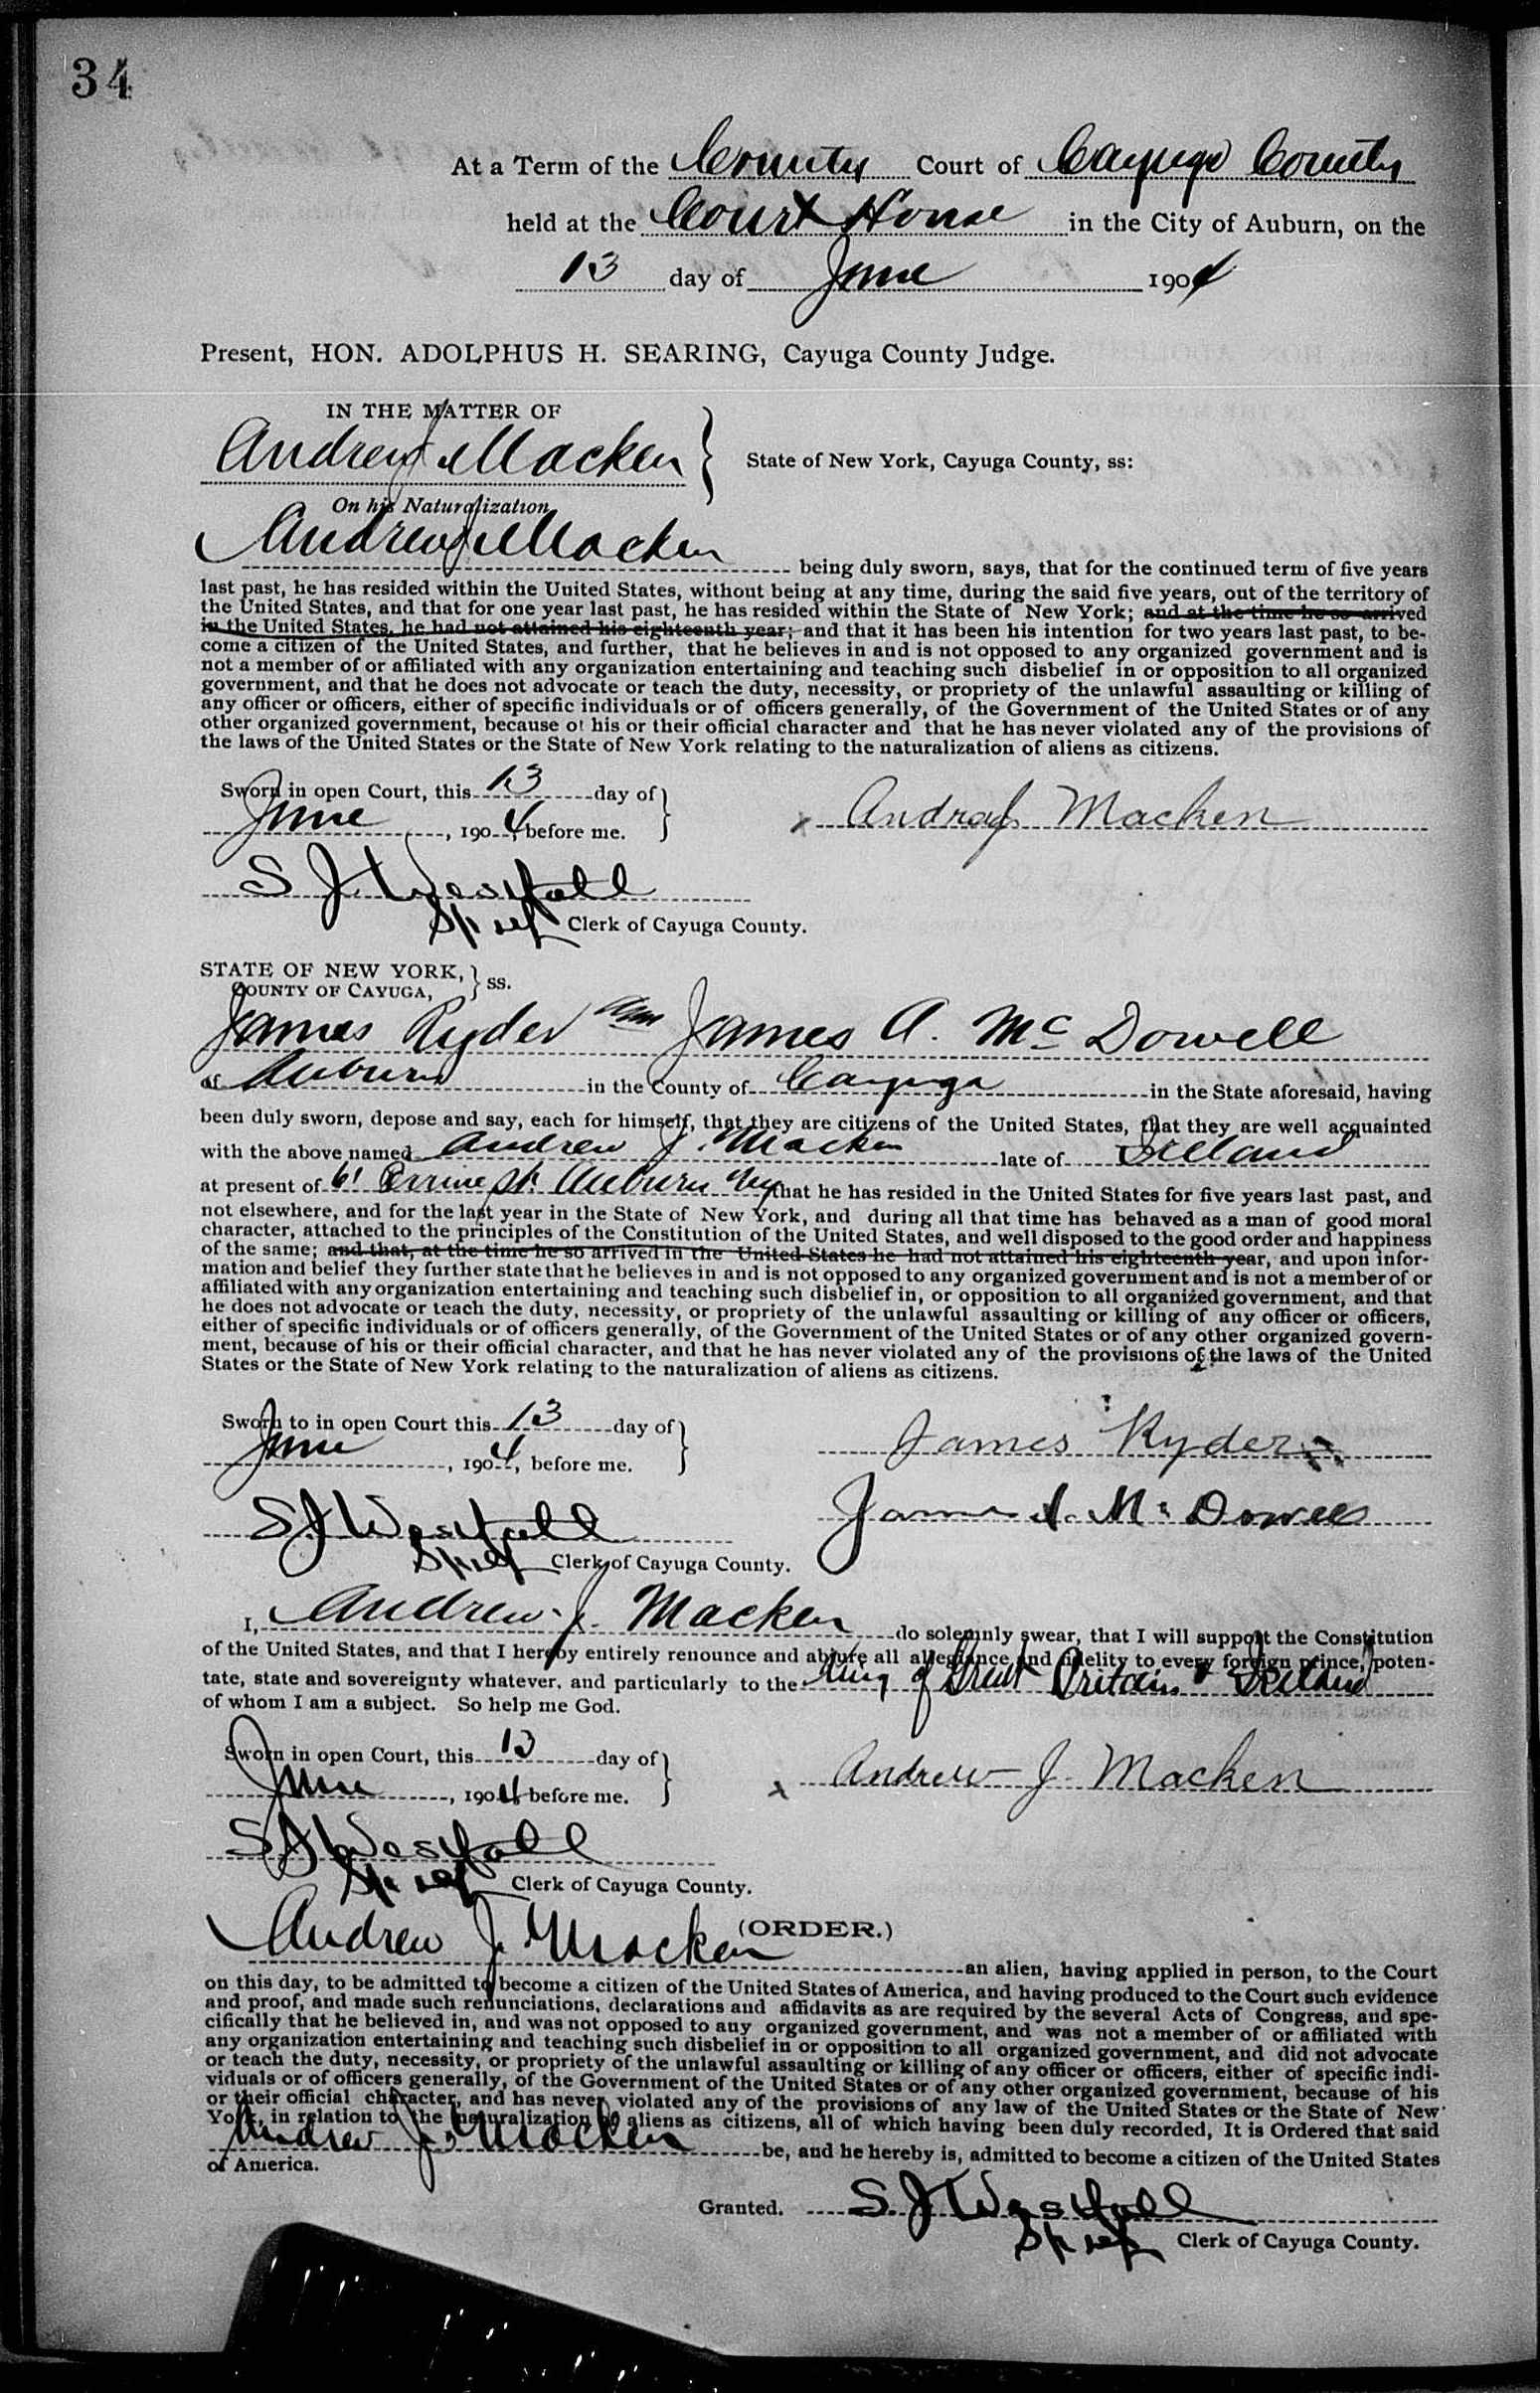 34
At a Term of the County Court of Cayuga County
held at the Court House in the City of Auburn, on the
13 day of June 1904
Present, HON. ADOLPHUS H. SEARING, Cayuga County Judge.
IN THE MATTER OF
Andrew J Macken
State of New York, Cayuga County, ss:
On his Naturalization
Andrew J Macken being duly sworn, says, that for the continued term of five years
last past, he has resided within the United States, without being at any time, during the said five years, out of the territory of
the United States, and that for one year last past, he has resided within the State of New York; and at the time he so arrived
in the United States, he had not attained his eighteenth year; and that it has been his intention for two years last past, to be-
come a citizen of the United States, and further, that he believes in and is not opposed to any organized government and is
not a member of or affiliated with any organization entertaining and teaching such disbelief in or opposition to all organized
government, and that he does not advocate or teach the duty, necessity, or propriety of the unlawful assaulting or killing of
any officer or officers, either of specific individuals or of officers generally, of the Government of the United States or of any
other organized government, because of his or their official character and that he has never violated any of the provisions of
the laws of the United States or the State of New York relating to the naturalization of aliens as citizens.
Sworn in open Court, this 13 day of
June, 1904, before me.
Andrew J Macken
S J Westfall
Clerk of Cayuga County.
STATE OF NEW YORK,
COUNTY OF CAYUGA, ss.
James Ryder and James A. McDowell
of Auburn in the County of Cayuga in the State aforesaid, having
been duly sworn, depose and say, each for himself, that they are citizens of the United States, that they are well acquainted
with the above named Andrew J. Macken late of Ireland
at present of 61 Perrine St. Auburn Ny that he has resided in the United States for five years last past, and
not elsewhere, and for the last year in the State of New York, and during all that time has behaved as a man of good moral
character, attached to the principles of the Constitution of the United States, and well disposed to the good order and happiness
of the same; and that, at the time he so arrived in the United States he had not attained his eighteenth year, and upon infor-
mation and belief they further state that he believes in and is not opposed to any organized government and is not a member of or
affiliated with any organization entertaining and teaching such disbelief in, or opposition to all organized government, and that
he does not advocate or teach the duty, necessity, or propriety of the unlawful assaulting or killing of any officer or officers,
either of specific individuals or of officers generally, of the Government of the United States or of any other organized govern-
ment, because of his or their official character, and that he has never violated any of the provisions of the laws of the United
States or the State of New York relating to the naturalization of aliens as citizens.
Sworn to in open Court this 13 day of
June, 1904, before me.
James Ryder
S J Westfall
James A. McDowell
Clerk of Cayuga County.
I, Andrew J. Macken do solemnly swear, that I will support the Constitution
of the United States, and that I hereby entirely renounce and abjure all allegiance and fidelity to every foreign prince, poten-
tate, state and sovereignty whatever, and particularly to the King of Great Britain & Ireland
of whom I am a subject. So help me God.
Sworn in open Court, this 13 day of
June, 1904 before me.
Andrew J. Macken
S J Westfall
Clerk of Cayuga County.
(ORDER.)
Andrew J. Macken an alien, having applied in person, to the Court
on this day, to be admitted to become a citizen of the United States of America, and having produced to the Court such evidence
and proof, and made such renunciations, declarations and affidavits as are required by the several Acts of Congress, and spe-
cifically that he believed in, and was not opposed to any organized government, and was not a member of or affiliated with
any organization entertaining and teaching such disbelief in or opposition to all organized government, and did not advocate
or teach the duty, necessity, or propriety of the unlawful assaulting or killing of any officer or officers, either of specific indi-
viduals or of officers generally, of the Government of the United States or of any other organized government, because of his
or their official character, and has never violated any of the provisions of any law of the United States or the State of New
York, in relation to the naturalization of aliens as citizens, all of which having been duly recorded, It is Ordered that said
Andrew J. Macken be, and he hereby is, admitted to become a citizen of the United States
of America.
Granted. S. J Westfall
Clerk of Cayuga County.